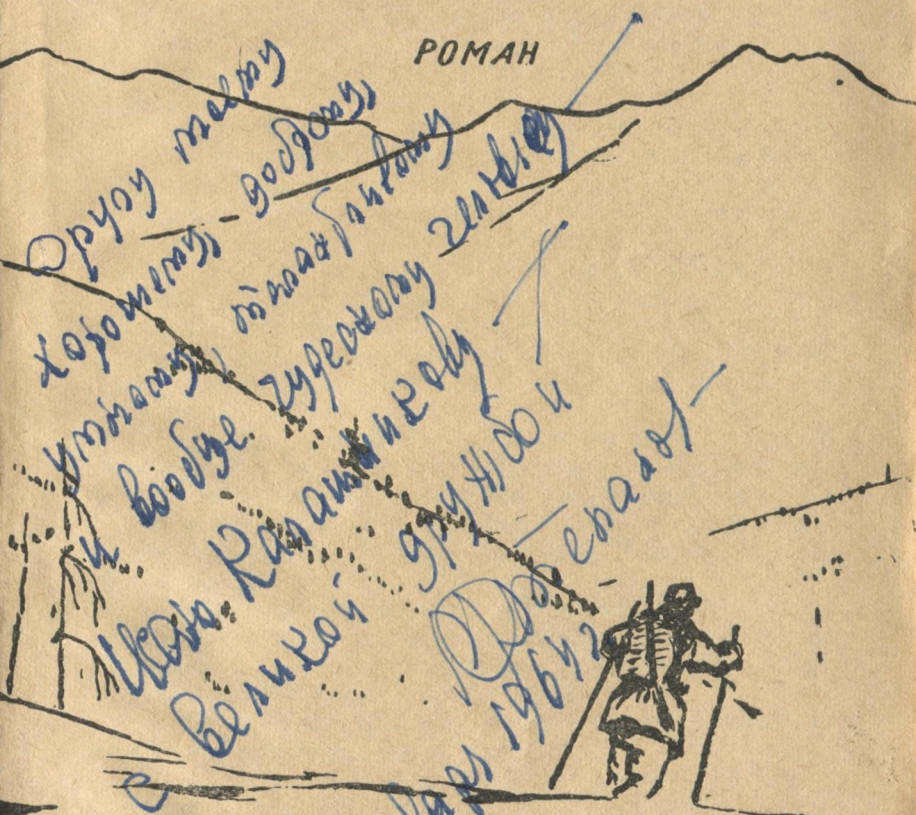 РОМАН
Другу моему
хорошему, доброму,
умному, талантливому
и вообще чудесному человеку
Ивану Калашникову
с великой дружбой
1964 г